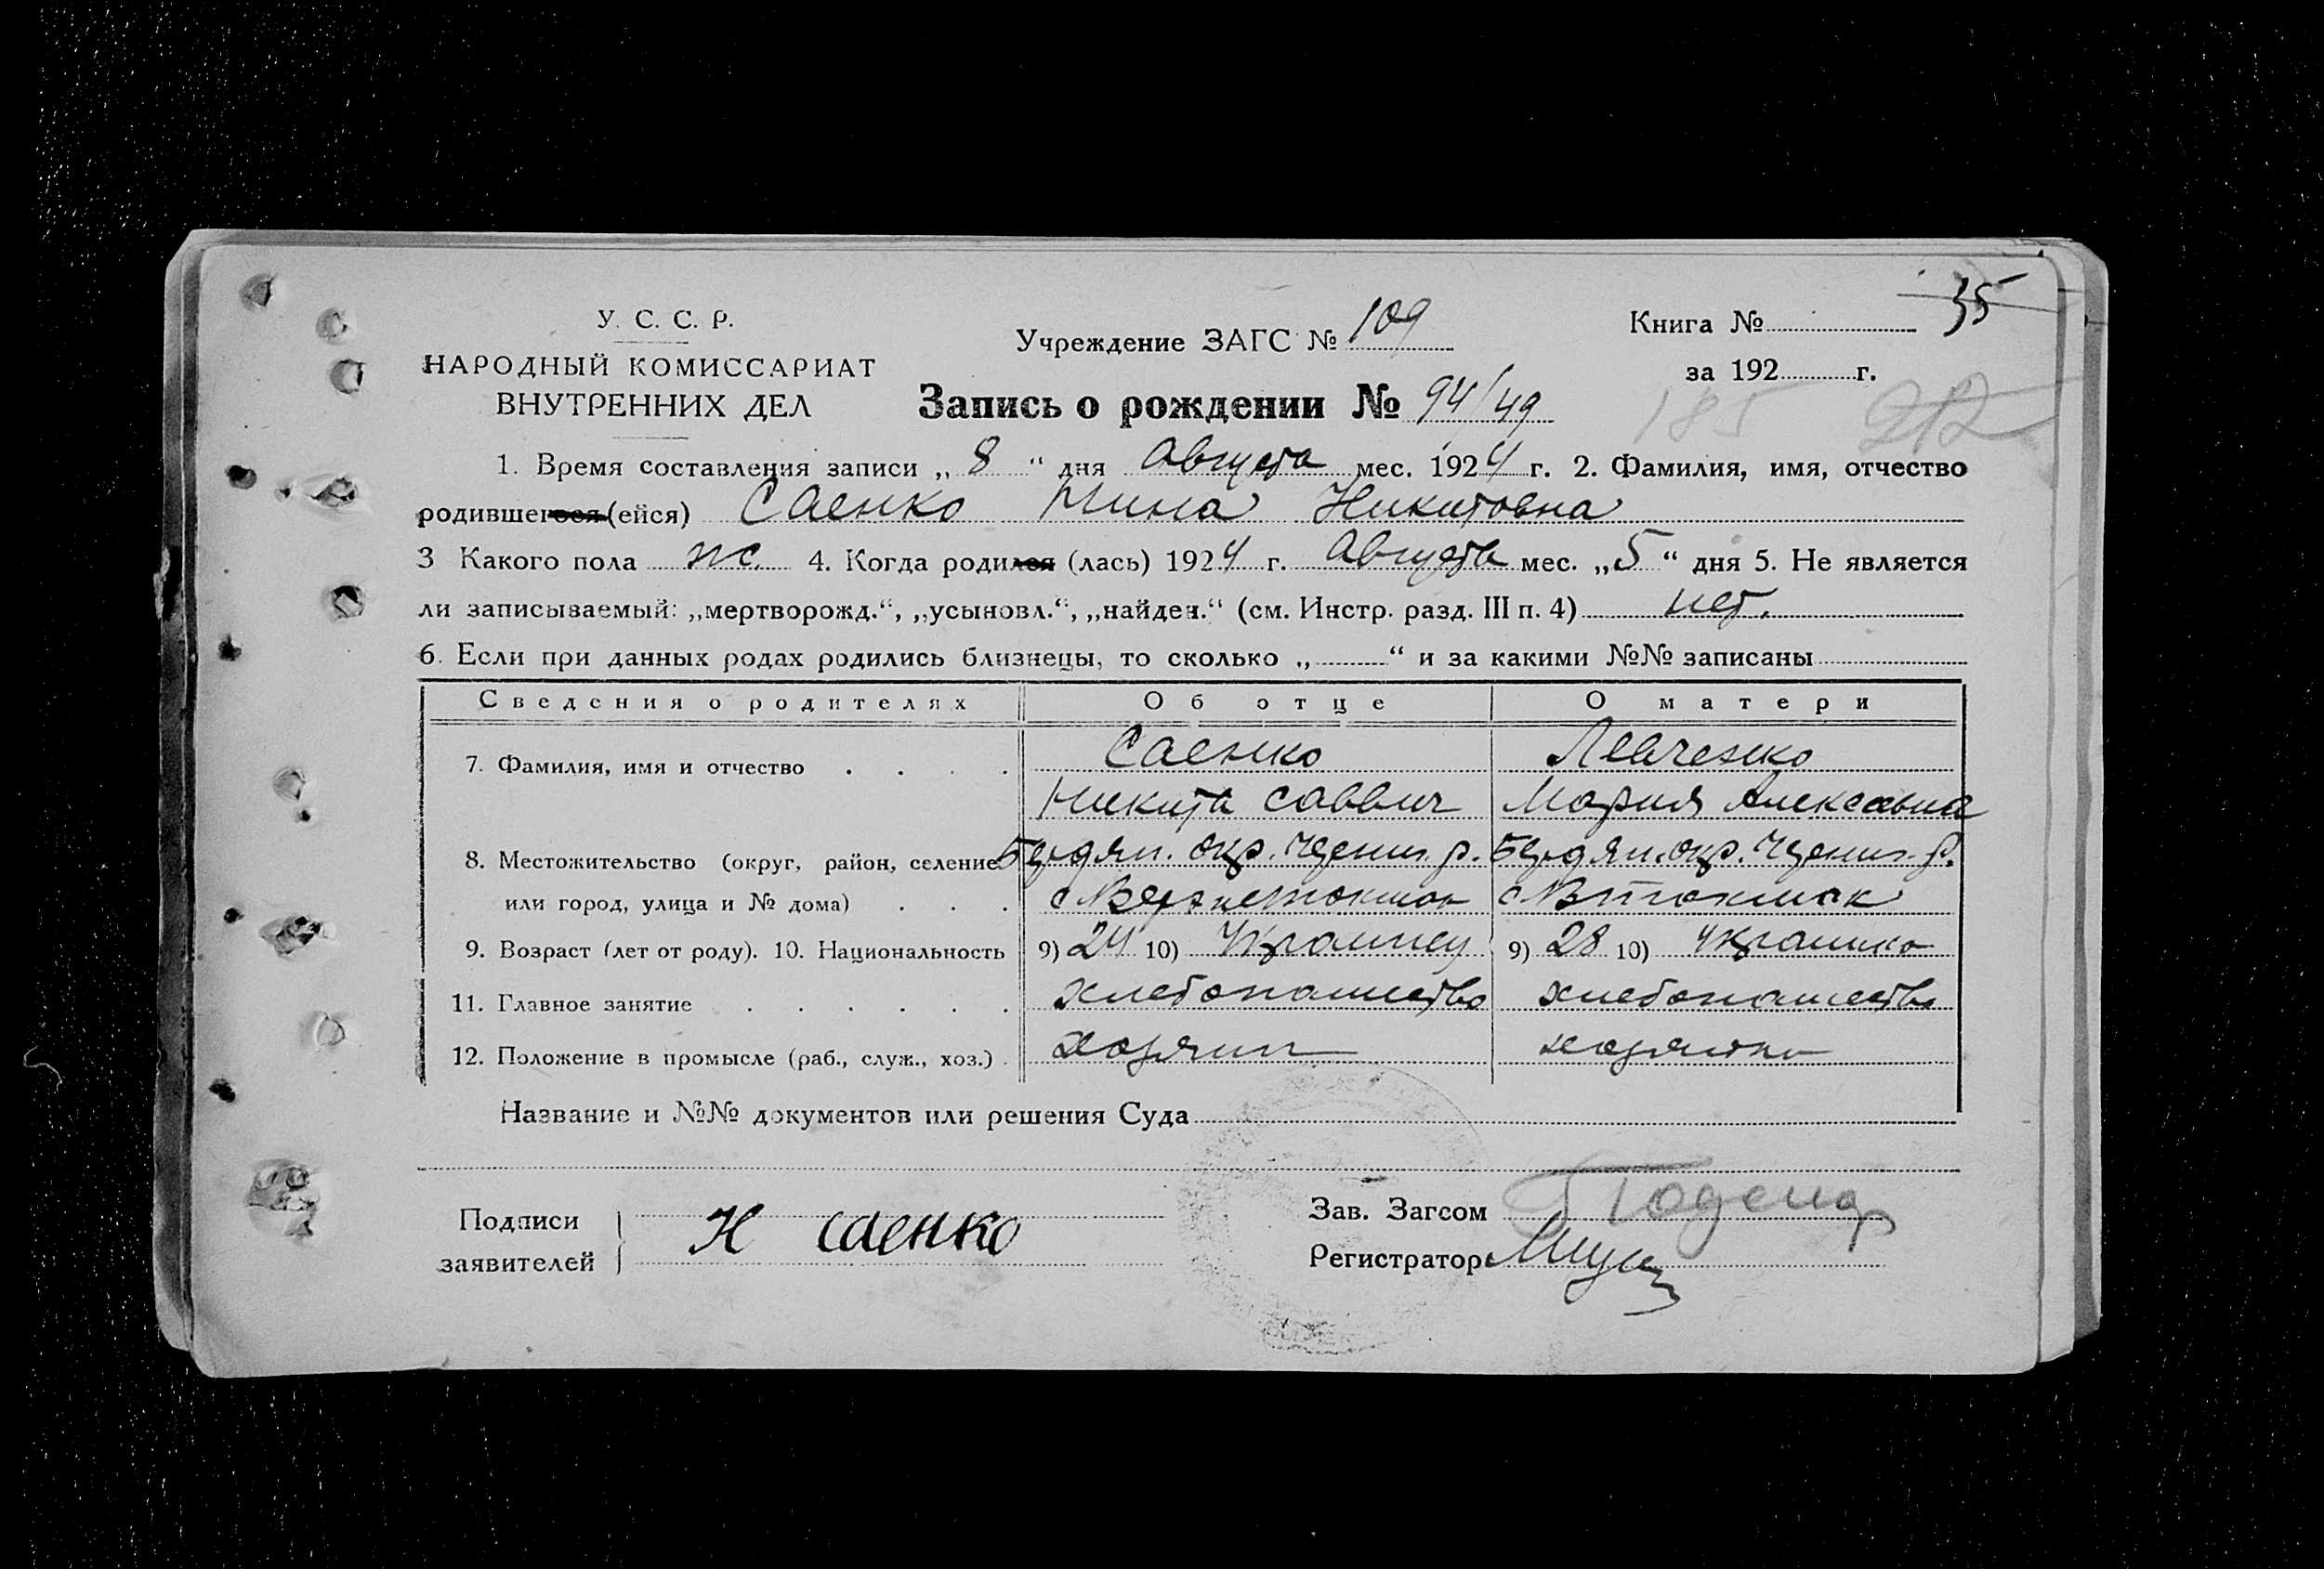 35
У. С. С. Р.
НАРОДНЫЙ КОМИССАРИАТ
ВНУТРЕННИХ ДЕЛ
Учреждение ЗАГС № 109
Книга №
за 192 г.
Запись о рождении № 94/49
185 212
1. Время составления записи „ 8 “ дня Августа мес. 1924 г. 2. Фамилия, имя, отчество
родившегося (ейся) Саенко Нина Никитовна
3 Какого пола ж. 4. Когда родился (лась) 1924 г. Августа мес. „5“ дня 5. Не является
ли записываемый: „мертворожд.“, „усыновл.“, „найден.“ (см. Инстр. разд. III п. 4) нет.
6. Если при данных родах родились близнецы, то сколько „ “ и за какими №№ записаны
Сведения о родителях Об отце О матери
7. Фамилия, имя и отчество Саенко Левченко
Никита Саввич Мария Алексевна
8. Местожительство (округ, район, селение Бердян. окр. р. Бердян. окр. р.
или город, улица и № дома) с Верхнетокмак с Втокмак
9. Возраст (лет от роду). 10. Национальность 9) 24 10) Украинец 9) 28 10) Украинка
11. Главное занятие хлебопашество хлебопашество
12. Положение в промысле (раб., служ., хоз.) хозяин хозяйка
Название и №№ документов или решения Суда
Подписи
заявителей
Н Саенко
Зав. Загсом
Регистратор